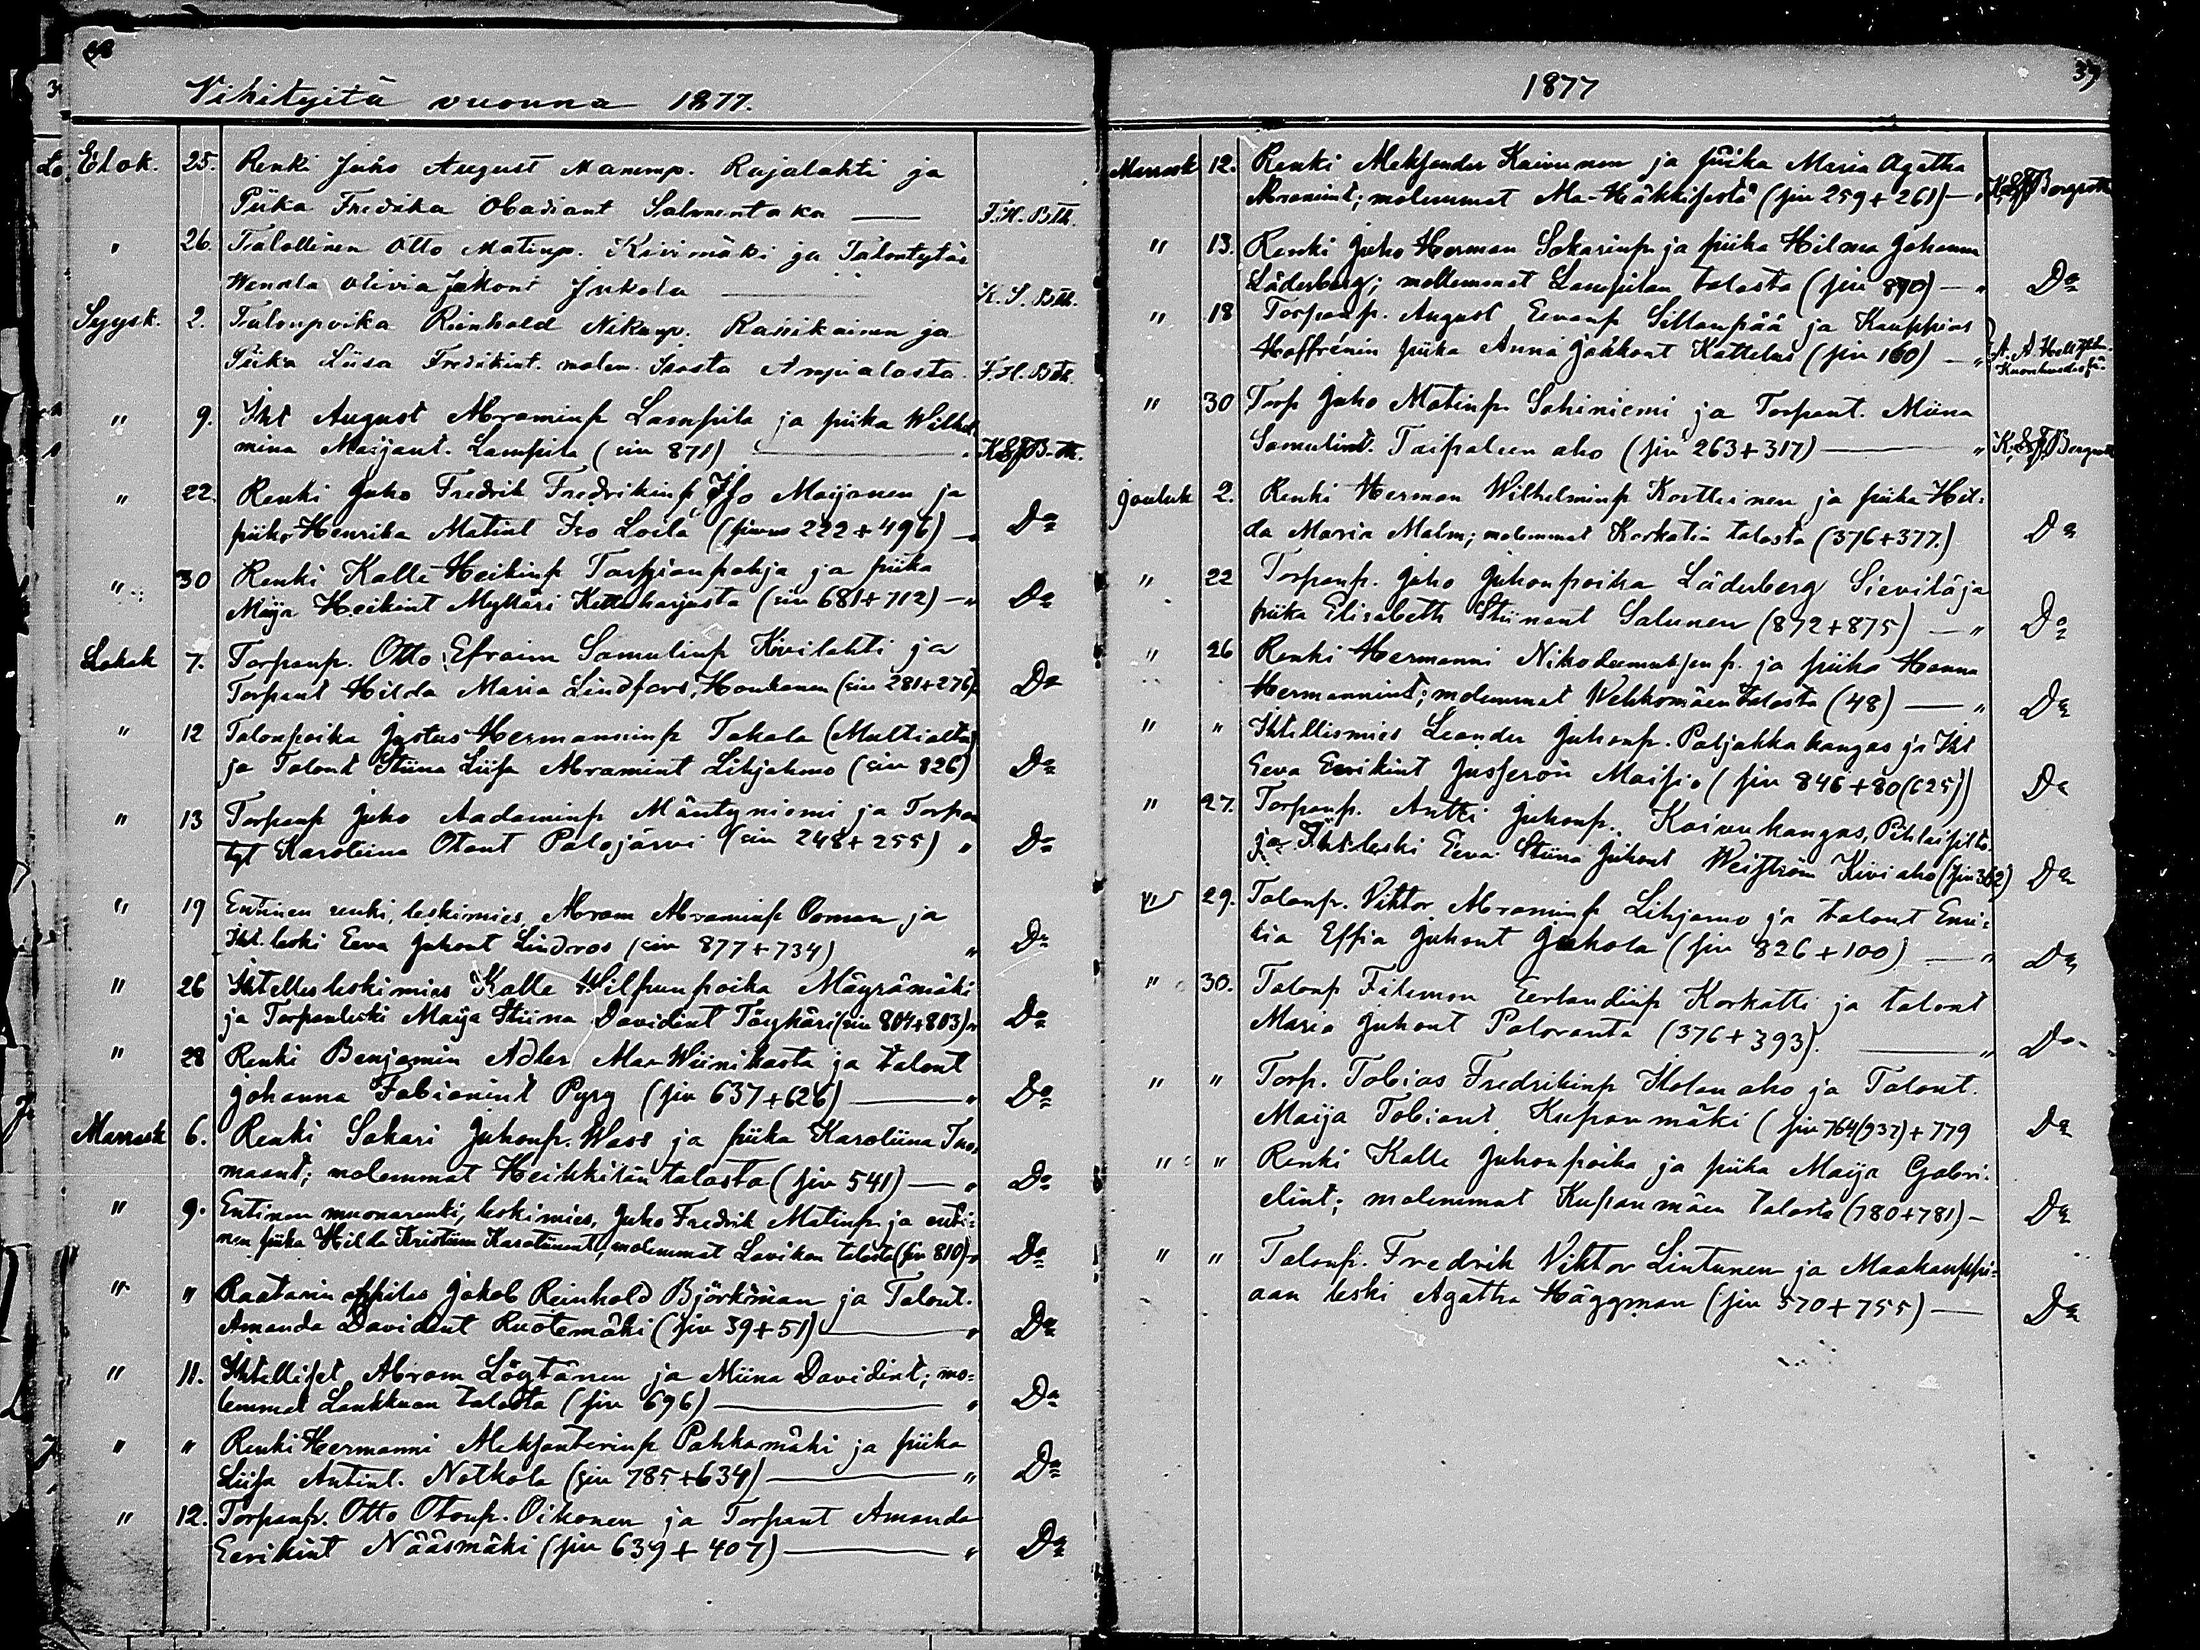 38
Vihityitä vuonna 1877.
Elok. 25. Renki Juho August Manemp. Rajalahti ja
Piika Fredika Obadiant Salmentaka — F. H. Bth.
" 26. Talollinen Otto Matinp. Kivimäki ja Talontytär
Wendla Olivia Jakont Jukola — K. S. Bth.
Syysk. 2. Talonpoika Reinhold Nikunp. Rassikainen ja
Piika Liisa Fredikint. molem. Isosta Ampialasta. F. H. Bth.
" 9. Iht August Abraminp Lampila ja piika Wilhel-
mina Maijant. Lampila (siv 871) — " K S F B-th.
" 22. Renki Juho Fredrik Fredrikinp Iso Maijanen ja
piika Henrika Matint Iso Loila (sivu 222 + 496) — " Do
" 30 Renki Kalle Heikinp Tarpianpohja ja piika
Maija Heikint Mylläri Kettuharjusta (siv 681 + 712) — " Do
Lokak 7. Torpanp. Otto Efraim Samulinp Kivilahti ja
Torpant Hilda Maria Lindfors, Honkonen (siv 281 + 276) Do
" 12 Talonpoika Justus Hermanninp Takala (Multialta)
ja Talont Stiina Liisa Abramint Lihjahmo (siv 826) Do
" 13 Torpanp Juho Aadaminp Mäntyniemi ja Torpan
tyt Karoliina Otont Palojärvi (siv 248 + 255) " Do
" 19 Entinen renki, leskimies, Abram Abraminp Ooman ja
Iht. leski Eeva Juhont Lindroos (siv 877 + 734) " Do
" 26 Ihtelles leskimies Kalle Wilpunpoika Mäyrämäki
ja Torpanleski Maija Stiina Davidint Töykäri (siv 804 + 803) " Do
" 28 Renki Benjamin Adler Maa-Wiinikasta ja talont
Johanna Fabianint Pyry (siv 637 + 626) — " Do
Marrask 6. Renki Sakari Juhonp. Wass ja piika Karoliina Tuo-
maant; molemmat Heikkilän talosta (siv 541) — " Do
" 9. Entinen muonarenki, leskimies, Juho Fredrik Matinp. ja enti-
nen piika Hilda Kristiina Karoliinant, molemmat Lavikan talosta (siv 810) " Do
" " Raatarin oppilas Jakob Reinhold Björkman ja Talont.
Amanda Davidint Ruotemäki (siv 39 + 51) — " Do
" 11. Ihtelliset Abram Löytänen ja Miina Davidint; mo-
lemmat Laukkuan talosta (siv 696) — " Do
" " Renki Hermanni Aleksanterinp Pakkamäki ja piika
Liisa Antint. Notkola (siv 785 + 634) — " Do
" 12. Torpanp. Otto Otonp. Oikonen ja Torpant Amanda
Eerikint Nääsmäki (siv 639 + 407) — " Do
1877
39
Marrask 12. Renki Aleksander Kaivunen ja piika Maria Agatha
Abramint; molemmat Ala-Häkkisestä (siv 259 + 261) — " K S F Bergroth
" 13. Renki Juho Herman Sakarinp. ja piika Hilma Johanna
Läderberg; molemmat Lampilan talosta (siv 870) — " Do
" 18 Torpanp. August Eevanp Sillanpää ja Kauppias
Hoffrénin piika Anna Jakkont Kattelus (siv 160) — "
" 30 Torp Juho Matinp. Sahiniemi ja Torpant. Miina
Samulint. Taipaleen aho (siv 263 + 317) — " K. S. F. Bergroth
Jouluk 2. Renki Herman Wilhelminp Kortteinen ja piika Hil-
da Maria Malm; molemmat Korkatin talosta (376 + 377.) Do
" 22 Torpanp. Juho Juhonpoika Läderberg Sievilä ja
piika Elisabeth Stiinant Salunen (872 + 875) — " Do
" 26 Renki Hermanni Nikodeemuksen p. ja piika Hanna
Hermannint; molemmat Wehkomäen talosta (48) — " Do
" " Ihtellismies Leander Juhonp. Paljakkakangas ja Iht
Eeva Eerikint Jusserón Maisio (siv 846 + 80 (625)) Do
" 27. Torpanp. Antti Juhonp. Koivukangas,
ja Iht leski Eeva Stiina Juhont Weiström Kiviaho (siv 362) Do
" 29. Talonp. Viktor Abraminp Lihjamo ja talont Emi-
lia Effia Juhont Jukola (siv 826 + 100) — " Do
" 30. Talonp Filemon Eerlandinp Korkatti ja talont
Maria Juhont Paloranta (376 + 393). — " Do
" " Torp. Tobias Fredrikinp Kolanaho ja Talont.
Maija Tobiant Kupanmäki (siv 764 (937) + 779 Do
" " Renki Kalle Juhonpoika ja piika Maija Gabri-
elint; molemmat Kupanmäen talosta (780 + 781) — Do
" " Talonp. Fredrik Viktor Lintunen ja Maakauppi-
aan leski Agatha Häggman (siv 570 + 755) — Do